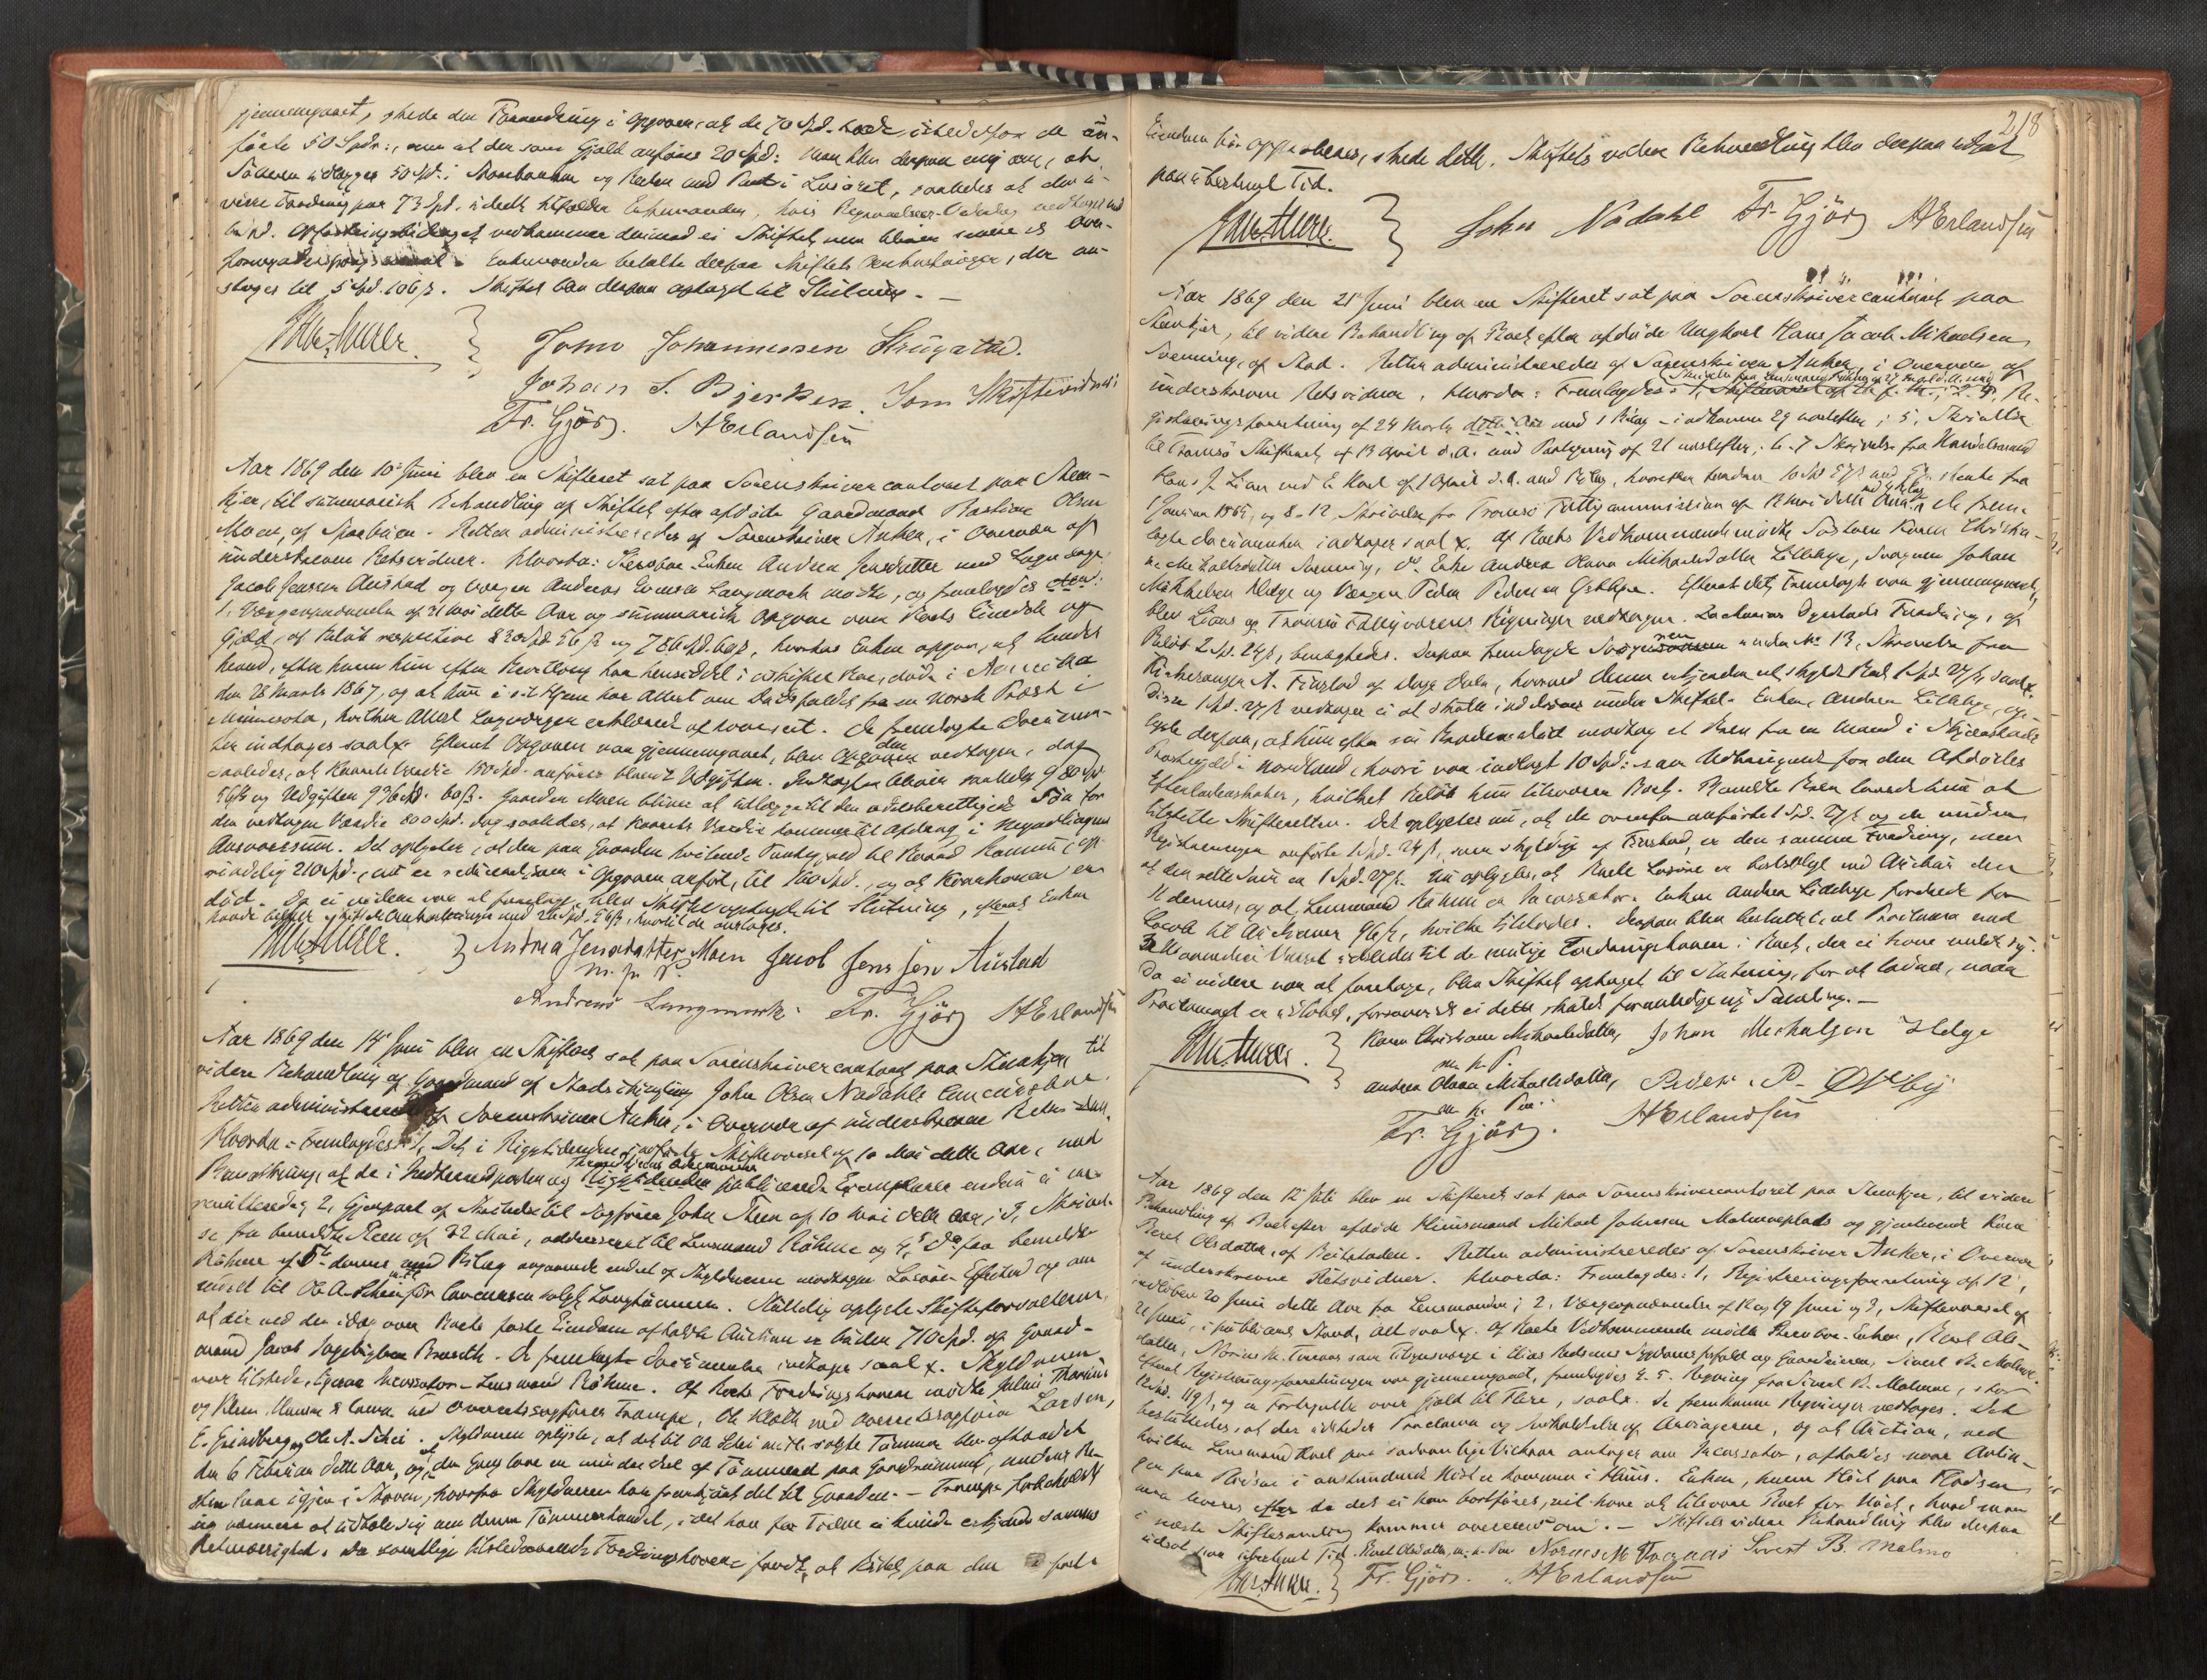 gjennemgaaet, skede den Forandring i Opgaven, at de 70 Spd. istedetfor de an-
førte 50 Spdr., men at der som Gjæld anføres 20 Spd: Man blev derpaa enig om, at
Sønnen udlægges 50 Spd. i og Resten med i Løsøret, saaledes at den
Fordring paa 73 Spd. tilfalder Enkemanden, hvis
vedkommer derimod ei Skiftet, men bliver
Enkemanden betalte derpaa Skiftets Omkostninger, der an-
sloges til 5 Spd. 106 ß. Skiftet blev derpaa optaget til Slutning. —
Johannessen
Johan S. Bjerken. Som Skiftevidner
Fr. Gjörz. H Erlandsen
Aar 1869 den 10de Juni blev en Skifteret sat paa Sorenskrivercontoret paa Sten-
kjær, til summarisk Behandling af Skiftet efter afdøde Gaardmand Bastian Olsen
Moen, af Sparbuen. Retten administreredes af Sorenskriver Anker, i Overvær af
underskrevne Retsvidner. Hvorda: Enken Andrea Jensdatter med Lagværge
Jacob Jensen Austad og Værgen Andreas Evensen Langmark mødte, og fremlagdes
1, Værgeopnævnelse af 21 Mai dette Aar og summarisk Opgave over Boets Eiendele og
Gjæld, af Beløb respective 830 Spd. 56 ß og 786 Spd. 60 ß, hvorhos Enken opgav, at hendes
Mand, efter hvem hun efter Bevilling har hensiddet i uskiftet Bo, døde i Amerika
den 28 Marts 1867, og at hun i sit Hjem har Attest om Dødsfaldet fra en norsk Præst i
Minnesota, hvilken Attest Lagværgen erklærede at have seet. De fremlagte Documen-
ter indtages saal. Efterat Opgaven var gjennemgaaet, blev den vedtagen, dog
saaledes, at Kaarets Værdie 150 Spd. anføres blandt Udgiften. Indtægten bliver saaledes 980 Spd.
56 ß og Udgiften 936 Spd. 60 ß. Gaarden Moen bliver at udlægge til den odelsberettigede Søn for
den vedtagne Værdie 800 Spd. dog saaledes, at Kaarets Værdie kommer til Afdrag i
Det oplystes, at den paa Gaarden hvilende Panteg.
210 Spd., nu er reduceret, som i Opgaven anført, til 160 Spd., og at er
død. Da ei videre var at foretage, blev Skiftet optaget til Slutning, efterat Enken
havde betalt Skifteomkostningerne med 26 Spd. 56 ß, hvortil de ansloges.
Andrea Jensdatter Moen Jacob Jensen Austad
m. p. P.
Andreas Langmark. Fr. Gjörz H Erlandsen
Aar 1869 den 14de Juni blev en Skifteret sat paa Sorenskrivercontoret paa Stenkjær til
videre Behandling af Gaardmand af Stods Thinglag John Olsen Nødahls Concursbo.
Retten administreredes af Sorenskriver Anker, i Overvær af underskrevne Retsvidner.
Hvorda: Fremlagdes: 1, Det i Rigstidenden indførte Skiftevarsel af 10 Mai dette Aar, med
Bemærkning, at de i Indherredsposten og Throndhjems Adresseavis publicerede Exemplarer endnu ei ere
remitterede; 2, Gjenpart af Skrivelse til Sagfører John Steen af 10 Mai dette Aar; 3, Skrivel-
se fra bemeldte Steen af 22 Mai, adresseret til Lensmand Röhme og 4, Do fra bemeldte
Röhme af 5te dennes med Bilag angaaende endel af Skyldnerens modtagne Løsøre Effecter og om
endelt til Ole A. Schei før Concursen solgt Langtømmer. Mundtlig oplyste Skifteforvalteren,
at der ved den idag over Boets faste Eiendom afholdte Auction er buden 710 Spd. af Gaard-
mand Jacob Ingebrigtsen Braseth. De fremlagte Documenter indtages saal. Skyldneren
var tilstede, ligesaa Incassator Lensmand Röhme. Af Boets Fordringshavere mødte Julius Thorius
og Klem. Hansen & Comp. ved Overretssagfører Trampe, Ole Kloth ved Overretssagfører Larsen,
E. Grindberg og Ole A. Schei. Skyldneren oplyste, at det til Ole Schei solgte Tømmer blev afhændet
den 6 Februar dette Aar, og at der en mindre Deel af Tømmeret paa Gaardsrummet, medens Re-
sten laae igjen i Skoven, hvorfra Skyldneren har fremkjørt det til Gaarden. — Trampe forbeholdt
sig nærmere at udtale sig om denne Tømmerhandel, idet han for Tiden ei kunde erkjende sammes
Retmæssighed. Da samtlige tilstedeværende Fordringshavere fandt, at Budet paa den faste
218
Eiendom bør approberes, skede dette. Skiftets videre Behandling blev derpaa udsat
paa ubestemt Tid.
John Nødahl Fr. Gjörz H Erlandsen
Aar 1869 den 21de Juni blev en Skifteret sat paa Sorenskrivercontoret paa
Stenkjær, til videre Behandling af Boet efter afdøde Ungkarl Hans Jacob Mikaelsen
Svenning, af Stod. Retten administreredes af Sorenskriver Anker, i Overvær af
underskrevne Retsvidner. Hvorda: Fremlagdes: 1, Skrivelse fra Lensmand
Re-
gistreringsforretning af 24 Marts dette Aar med 1 Bilag – indkommen 29 næstefter; 5, Skrivelse
til Tromsø Skifteret af 13 April d. A. med Paategning af 21 næstefter; 6–7 Skrivelse fra Handelsmand
Hans J. Lian ved E. Karl af 1 April d. A. med Bilag, hvorefter fordres 10 Spd 57 ß med Rente fra
1 Januar 1869, og 8–12, Skrivelse fra Tromsø Fattigcommission af 12 Mai dette Aar med Bilag. De frem-
lagte Documenter indtages saal. Af Boets Vedkommende mødte Søsteren Karen Christia-
ne Mikaelsdatter Svenning, Do. Enke Andrea Olava Mikaelsdatter Lilleby, Svogeren Johan
Mikkelsen Helge og Værgen Peder Pedersen Østbye. Efterat det Fremlagte var gjennemgaaet,
blev Lians og Tromsø Fattigvæsens Regninger vedtagen. Zacharias Dyrstads Fordring, af
Beløb 2 Spd. 24 ß, benægtedes. Derpaa fremlagde Svogeren under No 13, Skrivelse fra
Kirkesanger A. Firstad af Dags Dato, hvorved denne erkjender at skylde Boet 1 Spd 27 ß saal.
Disse 1 Spd. 27 ß vedtages ei at skulle inddrives under Skiftet. Enken, Andrea Lilleby, op-
lyste derpaa, at hun efter sin Broders død modtog et Brev fra en Mand i
Præstegjeld i Nordland, hvori var indlagt 10 Spd: som Udbringende for den Afdødes
Efterladenskaber, hvilket Beløb hun tilsvarer Boet. Bemeldte Brev lovede hun at
tilstille Skifteretten. Det oplystes nu, at de ovenfor anførte 1 Spd. 27 ß og de under
Registreringen anførte 1 Spd. 24 ß, som skyldig af Firstad, er den samme Fordring, men
at den rette Sum er 1 Spd. 27 ß. Nu oplystes, at Boets Løsøre er bortsolgt ved Auction den
11 dennes, og at Lensmand Röhme er Incassator. Enken Andrea Lilleby fordrede for
Locale til Auctionen 96 ß, hvilke tilstodes. Derpaa blev besluttet, at Proclama med
3 Maaneders Varsel udstedes til de mulige Fordringshavere i Boet, der ei have meldt sig.
Da ei videre var at foretage, blev Skiftet optaget til Slutning, for at sluttes, naar
Proclamaet er udløbet, forsaavidt ei dette skulde foranledige ny Samling. —
Karen Christiane Mikaelsdatter, Johan Mechalsen Helge
m. p. P.
Andrea Olava Mikaelsdatter, Peder. P. Østby
m. p. Pen.
Fr. Gjörz. H Erlandsen
Aar 1869 den 12te Juli blev en Skifteret sat paa Sorenskrivercontoret paa Stenkjær, til videre
Behandling af Boet efter afdøde Huusmand Mikael Johnsen Malmoeplads og gjenlevende Kone
Beret Olsdatter, af Beitstaden. Retten administreredes af Sorenskriver Anker, i Overvær
af underskrevne Retsvidner. Hvorda: Fremlagdes: 1, Registreringsforretning af 12,
indløben 20 Juni dette Aar fra Lensmanden; 2, Værgeopnævnelse af 12 og 19 Juni og 3, Skiftevarsel af
21 Juni, i publiceret Stand, alt saal. Af Boets Vedkommende mødte Enken, Beret Ols-
datter, Nornes M. Tornaas som Tilsynsværge i Elias Rødsøens Sygdoms forfald og Gaardeieren, Sivert B. Malmo.
Efterat Registreringsforretningen var gjennemgaaet, fremlagdes Regning fra Sivert B. Malmoe, stor
12 Spd. 119 ß, og en Fortegnelse over Gjæld til Flere, saal. De fremkomne Regninger vedtages. Det
besluttedes, at der udstedes Proclama og Indkaldelse af Arvingerne, og at Auction, ved
hvilken Lensmand Karl paa sædvanlige Vilkaar antages som Incassator, afholdes naar Avlin-
gen paa Pladsen i anstundende Høst er kommen i Huus. Enken, hvem Höet paa Pladsen
maa leveres efter da det ei kan bortføres, vil have at tilsvare Boet for Höet, hvad man
i næste Skiftesamling kommer overeens om. — Skiftets videre Behandling blev derpaa
udsat paa ubestemt Tid. Beret Olsdatter, m. p. Pen Nornes M Tornaas Sivert B. Malmo
Fr. Gjörz. H Erlandsen